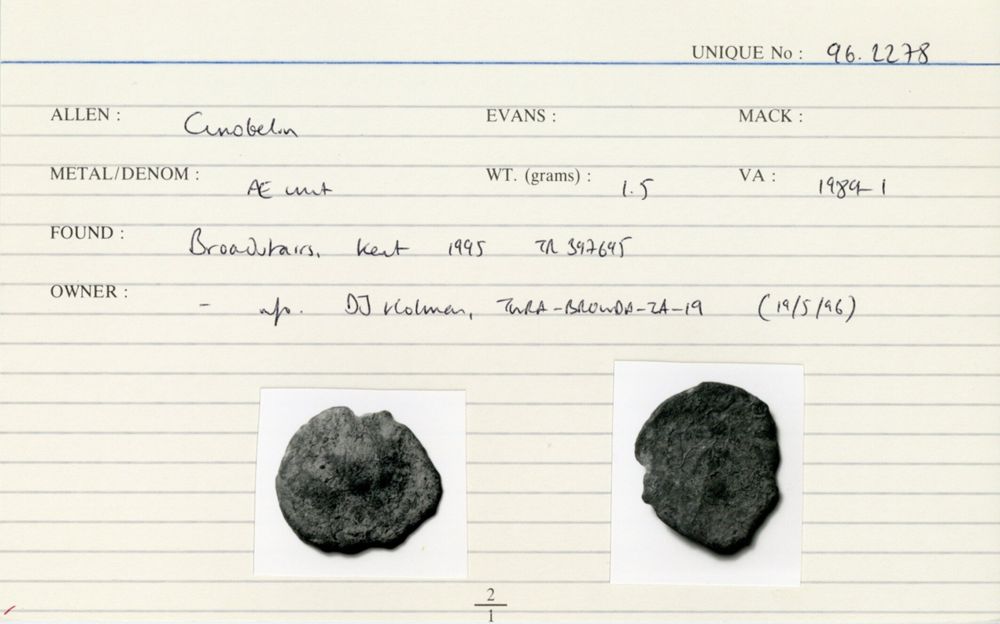 UNIQUE No : 96.2278
ALLEN : Cunobelin EVANS : MACK :
METAL/DENOM : Æ unit WT. (grams) : 1.5 VA : 1989-1
FOUND : Broadstairs, Kent 1995 TR 397695
OWNER : - info. DJ Holman, TWRA-BROWDA-ZA-19 (19/5/96)
2
1